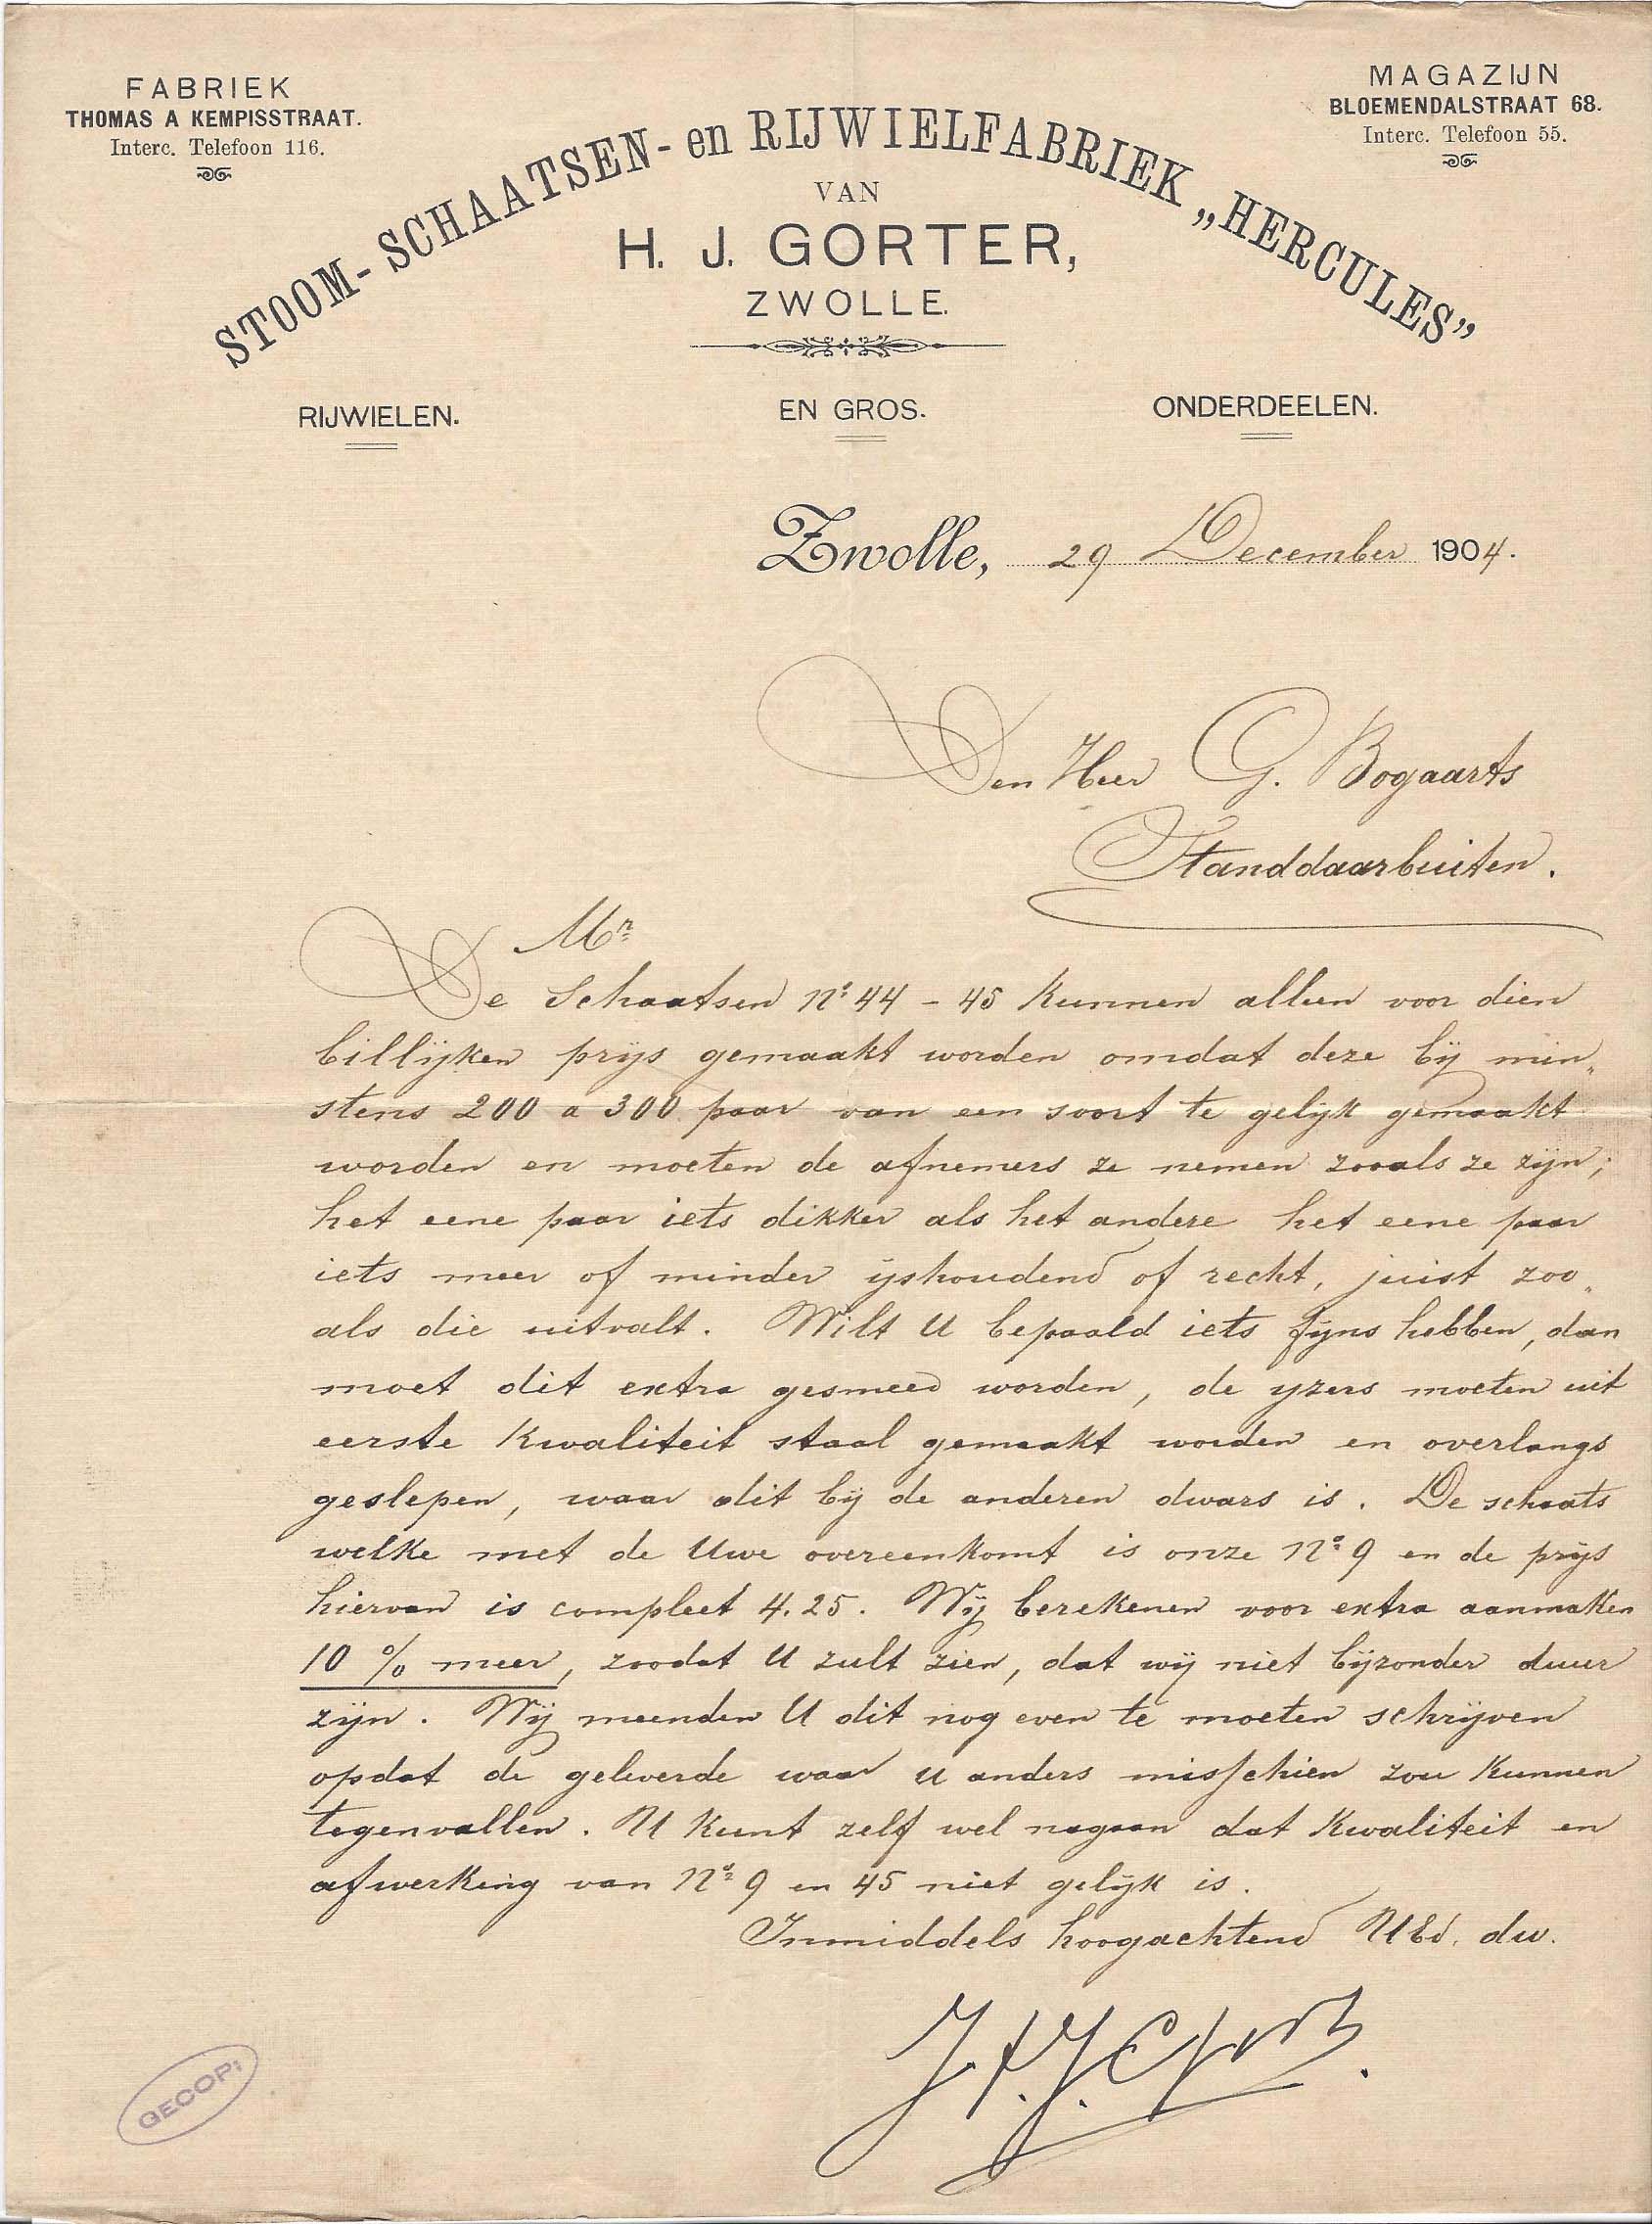 FABRIEK
THOMAS A KEMPISSTRAAT.
Interc. Telefoon 116.
MAGAZIJN
BLOEMENDALSTRAAT 68.
Interc. Telefoon 55.
STOOM- SCHAATSEN- en RIJWIELFABRIEK „HERCULES”
VAN
H. J. GORTER,
ZWOLLE.
RIJWIELEN. EN GROS. ONDERDEELEN.
Zwolle, 29 December 1904.
Den Heer G. Bogaarts
Standdaarbuiten.
Mr
De Schaatsen No 44 - 45 kunnen alleen voor dien
billijken prijs gemaakt worden omdat deze bij min„
stens 200 a 300 paar van een soort te gelijk gemaakt
worden en moeten de afnemers ze nemen zooals ze zijn;
het eene paar iets dikker als het andere het eene paar
iets meer of minder ijshoudend of recht, juist zoo„
als die uitvalt. Wilt U bepaald iets fijns hebben, dan
moet dit extra gesmeed worden, de yzers moeten uit
eerste kwaliteit staal gemaakt worden en overlangs
geslepen, waar dit bij de anderen dwars is. De schaats
welke met de Uwe overeenkomt is onze No 9 en de prijs
hiervan is compleet 4.25. Wij berekenen voor extra aanmaken
10 % meer, zoodat U zult zien, dat wij niet bijzonder duur
zijn. Wij meenden U dit nog even te moeten schrijven
opdat de geleverde waar u anders misschien zou kunnen
tegenvallen. U kunt zelf wel nagaan dat kwaliteit en
afwerking van No 9 en 45 niet gelijk is.
Inmiddels hoogachtend UEd. dw.
GECOPI